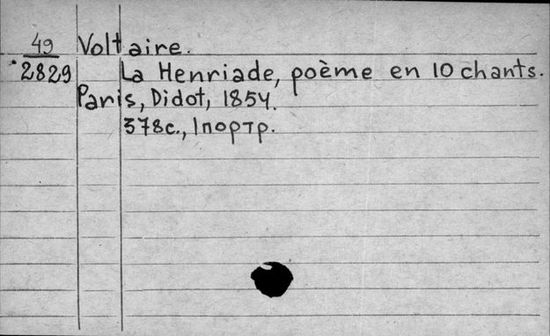 49 Voltaire.
2829 La Henriade, poème en 10 chants.
Paris, Didot, 1854.
378с., 1портр.